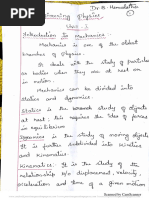 Dr. B. Hemalatha
Engineering Physics
Unit - I
Introduction to Mechanics:
Mechanics is one of the oldest
branches of Physics.
It deals with the study of particles
or bodies when they are at rest or
in motion.
Mechanics can be divided into
statics and dynamics.
Statics is the branch study of objects
at rest; this requires the idea of forces
in equilibrium
Dynamics is the study of moving objects
It is further subdivided into Kinetics
and Kinematics
Kinematics: It is the study of the
relationship b/w displacement, velocity,
acceleration and time of a given motion
Scanned by CamScanner